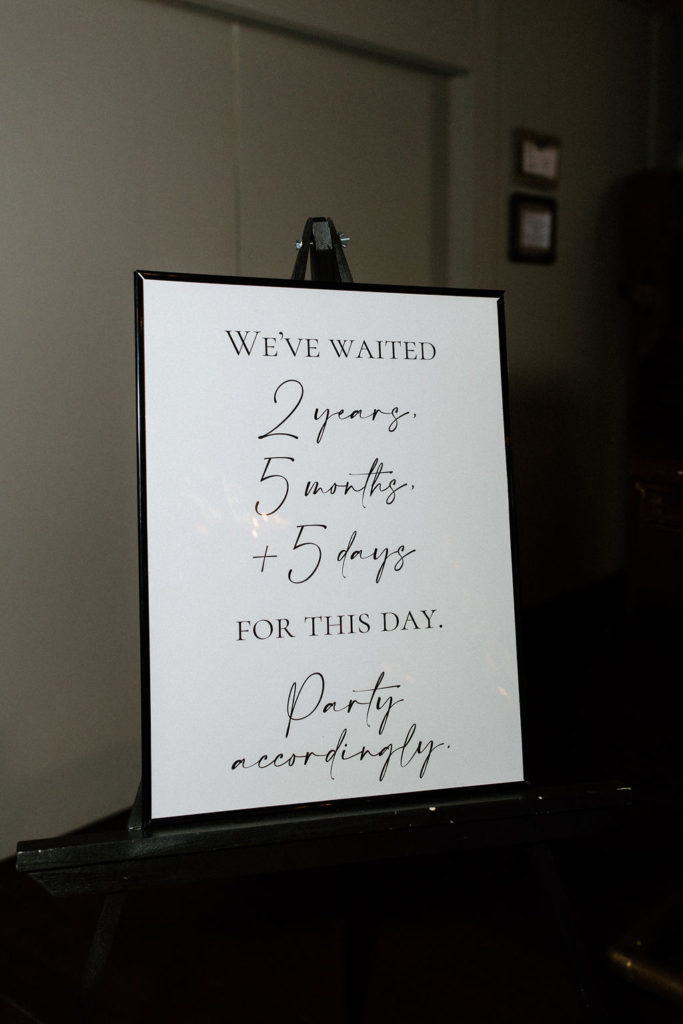 We've waited
2 years,
5 months,
+ 5 days
for this day.
Party
accordingly.